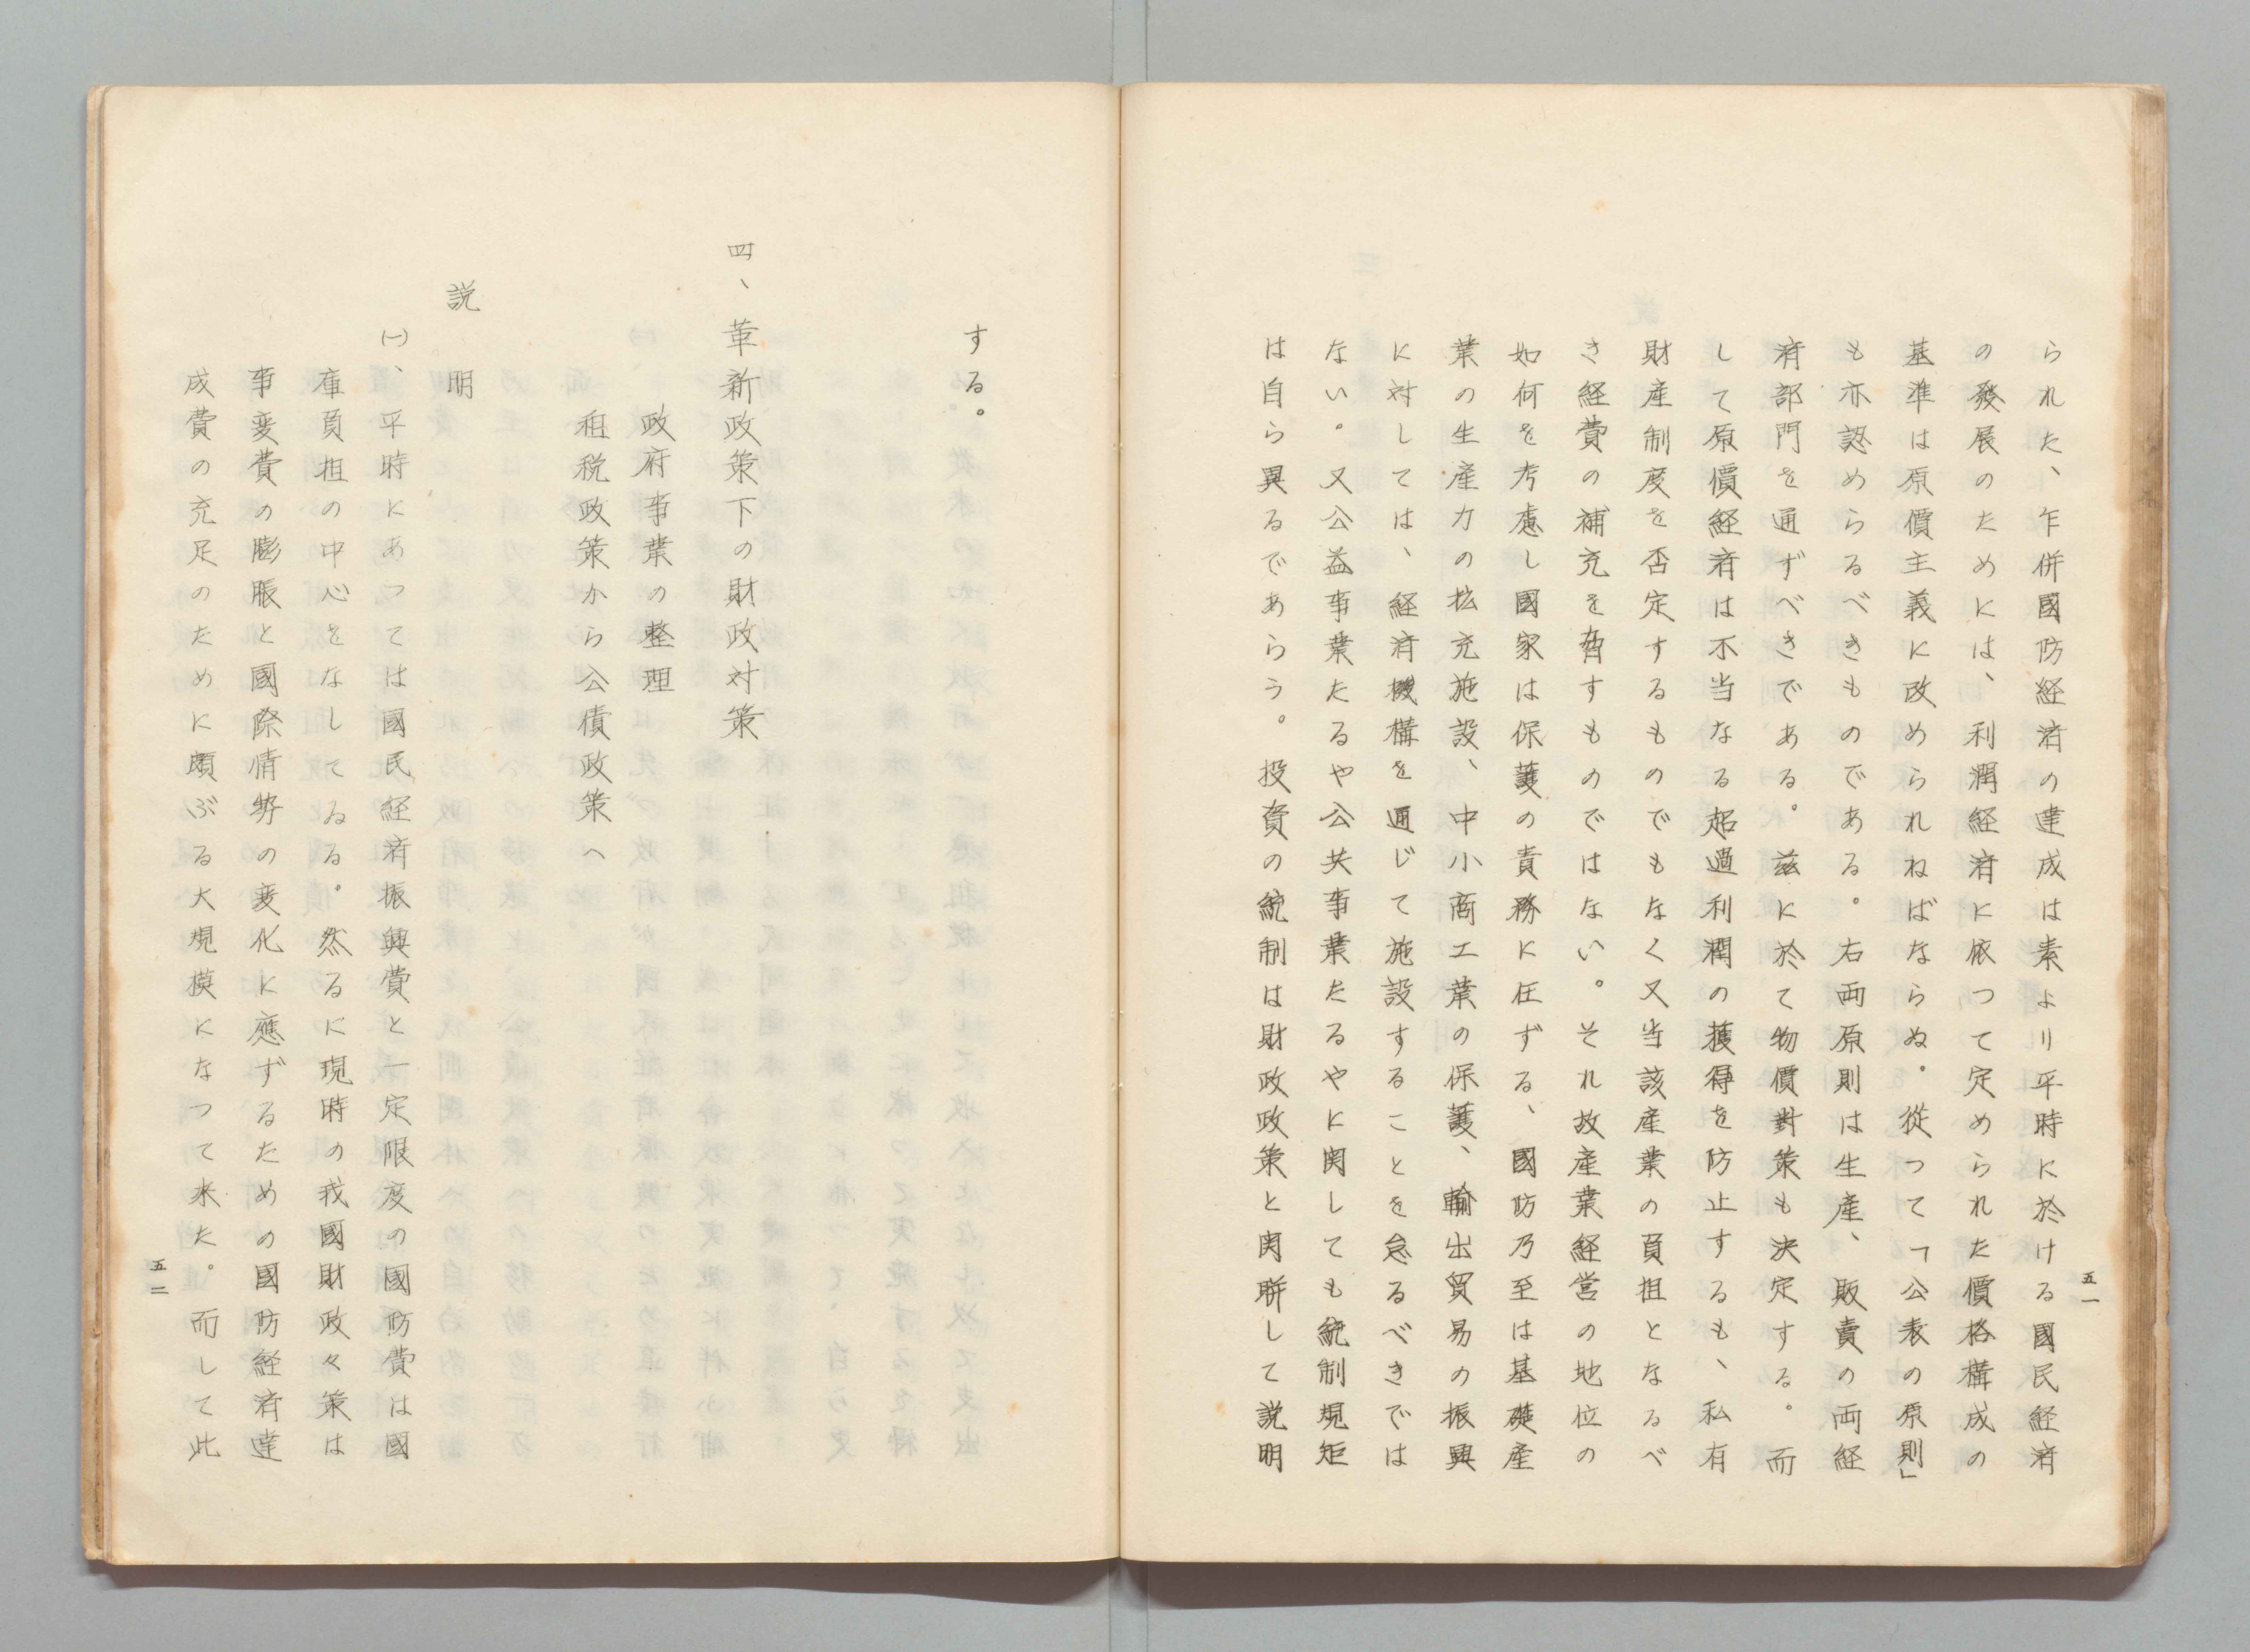 られた、乍併國防経済の達成は素より平時に於ける國民経済
の發展のためには、利潤経済に依つて定められた價格構成の
基準は原價主義に改められねばならぬ。從つて「公表の原則」
も亦認めらるべきものである。右両原則は生産、販賣の両経
済部門を通ずべきである。茲に於て物價對策も決定する。而
して原價経済は不当なる超過利潤の獲得を防止するも、私有
財産制度を否定するものでもなく又当該産業の負担となるべ
き経費の補充を脅すものではない。それ故産業経営の地位の
如何を考慮し國家は保護の責務に任ずる、國防乃至は基礎産
業の生産力の拡充施設、中小商工業の保護、輸出貿易の振興
に対しては、経済機構を通じて施設することを怠るべきでは
ない。又公益事業たるや公共事業たるやに関しても統制規矩
は自ら異るであらう。投資の統制は財政政策と関聯して説明
五一
する。
四、革新政策下の財政対策
政府事業の整理
租税政策から公債政策へ
説明
(一)、平時にあつては國民経済振興費と一定限度の國防費は國
庫負担の中心をなしてゐる。然るに現時の我國財政々策は
事変費の膨脹と國際情勢の変化に應ずるための國防経済達
成費の充足のために頗ぶる大規模になつて来た。而して此
五二